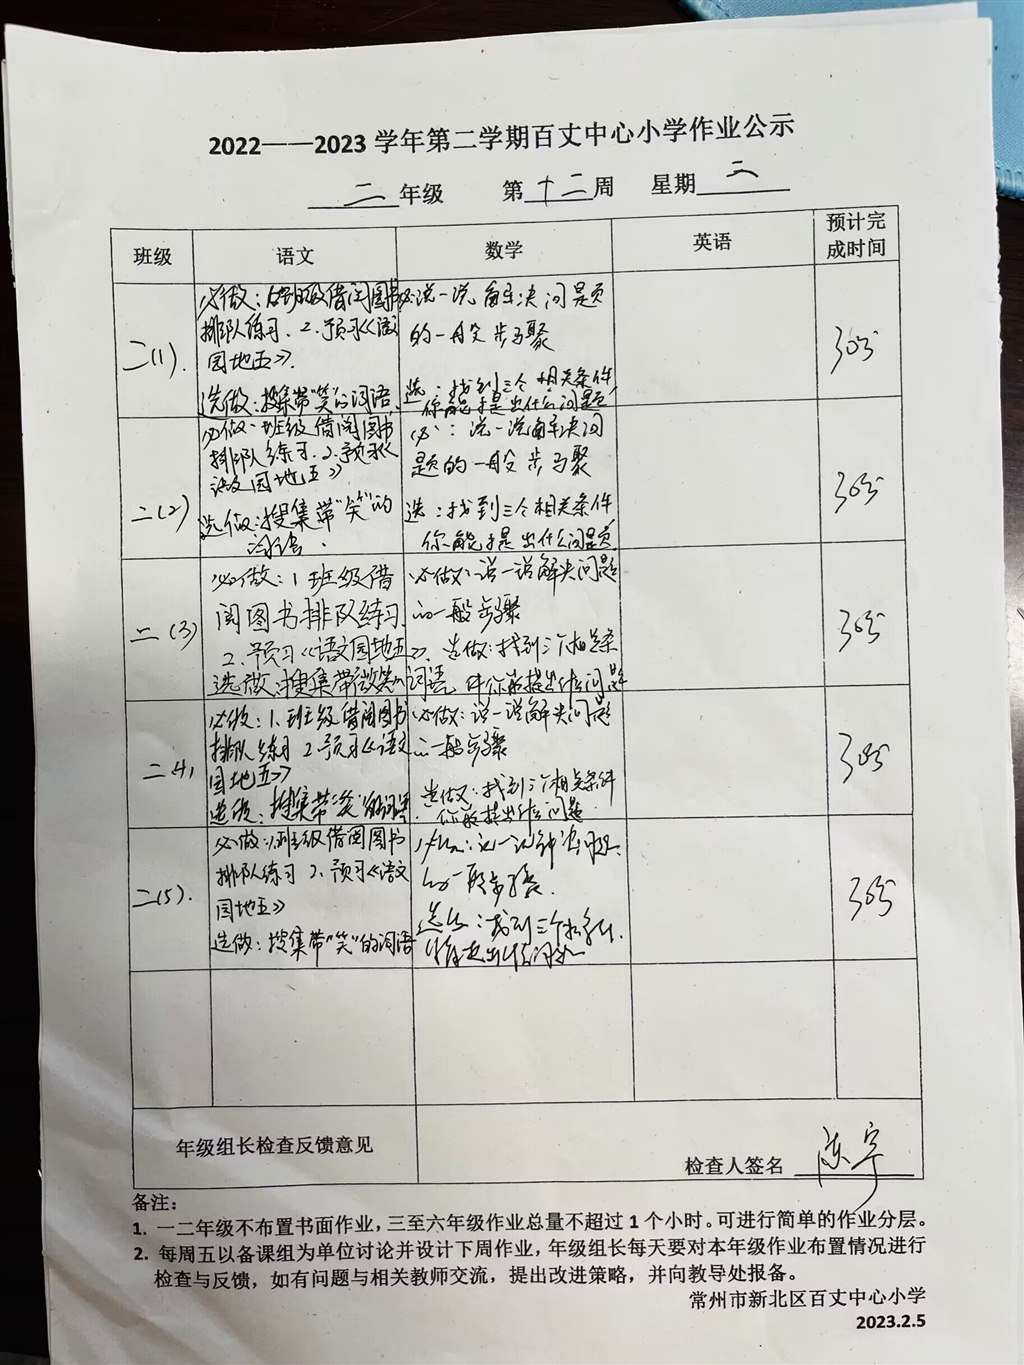 2022——2023 学年第二学期百丈中心小学作业公示
二 年级 第 十二 周 星期 三
班级 语文 数学 英语 预计完成时间
二(1).
必做:1.班级借阅图书
排队练习. 2.预习《语文
园地五》.
选做:搜集带"笑"的词语.
必:说一说解决问题
的一般步骤
选:找到三个相关条件
你能提出什么问题
30分
二(2)
必做:班级借阅图书
排队练习.2.预习《
语文园地五》
选做:搜集带"笑"的
词语.
必:说一说解决问
题的一般步骤
选:找到三个相关条件
你能提出什么问题
30分
二(3)
必做:1班级借
阅图书排队练习
2.预习《语文园地五》.
选做:搜集带微笑的词语
必做:说一说解决问题
的一般步骤
选做:找到三个相关条
件你能提出什么问题
30分
二4)
必做:1.班级借阅图书
排队练习 2.预习《语文
园地五》
选做:搜集带"笑"的词语.
必做:说一说解决问题
的一般步骤
选做:找到三个相关条件
你能提出什么问题.
30分
二(5).
必做:1.班级借阅图书
排队练习 2.预习《语文
园地五》
选做:搜集带"笑"的词语
必做:说一说解决问题
的一般步骤.
选做:找到三个相关条件.
你能提出什么问题
30分
年级组长检查反馈意见
检查人签名 陈宇
备注:
1. 一二年级不布置书面作业,三至六年级作业总量不超过 1 个小时。可进行简单的作业分层。
2. 每周五以备课组为单位讨论并设计下周作业,年级组长每天要对本年级作业布置情况进行
检查与反馈,如有问题与相关教师交流,提出改进策略,并向教导处报备。
常州市新北区百丈中心小学
2023.2.5